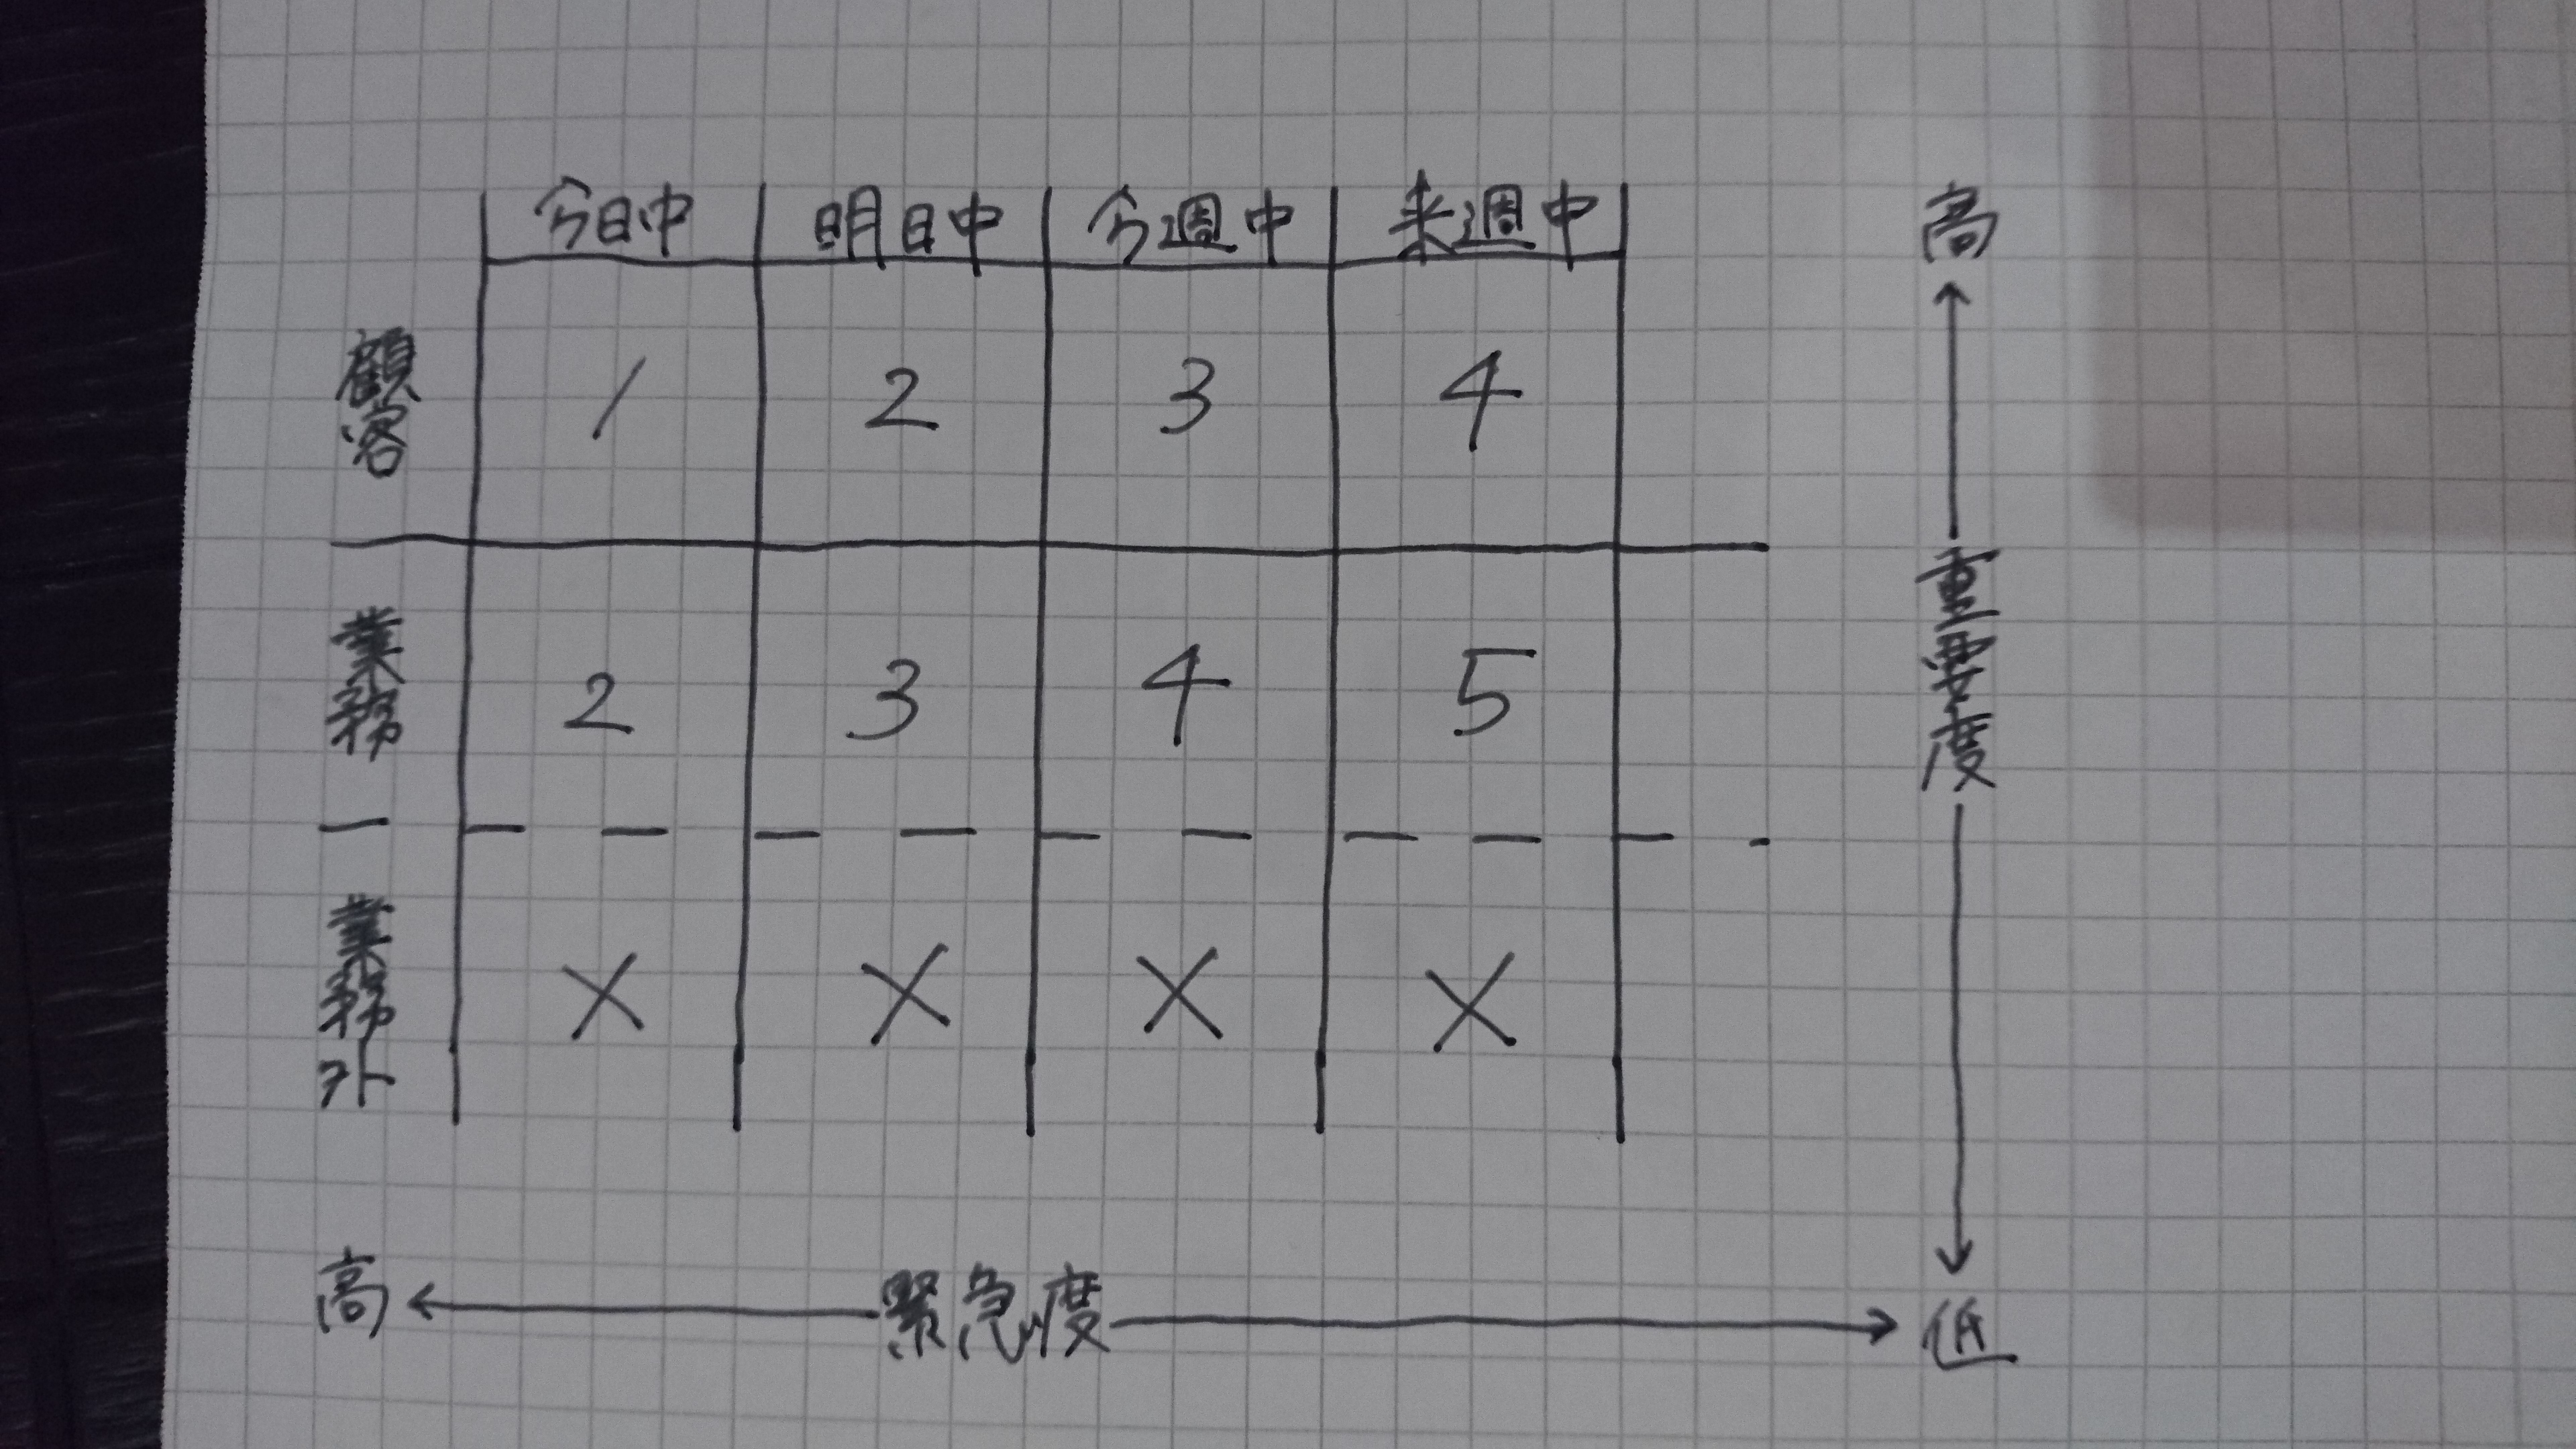 今日中 明日中 今週中 来週中
顧客 1 2 3 4
業務 2 3 4 5
業務外 × × × ×
高 重要度 低
高 緊急度